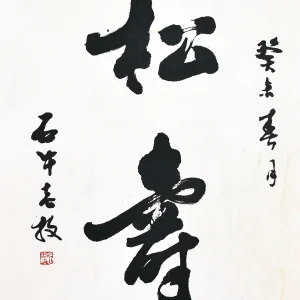 癸未春月
松壽
石牛老牧